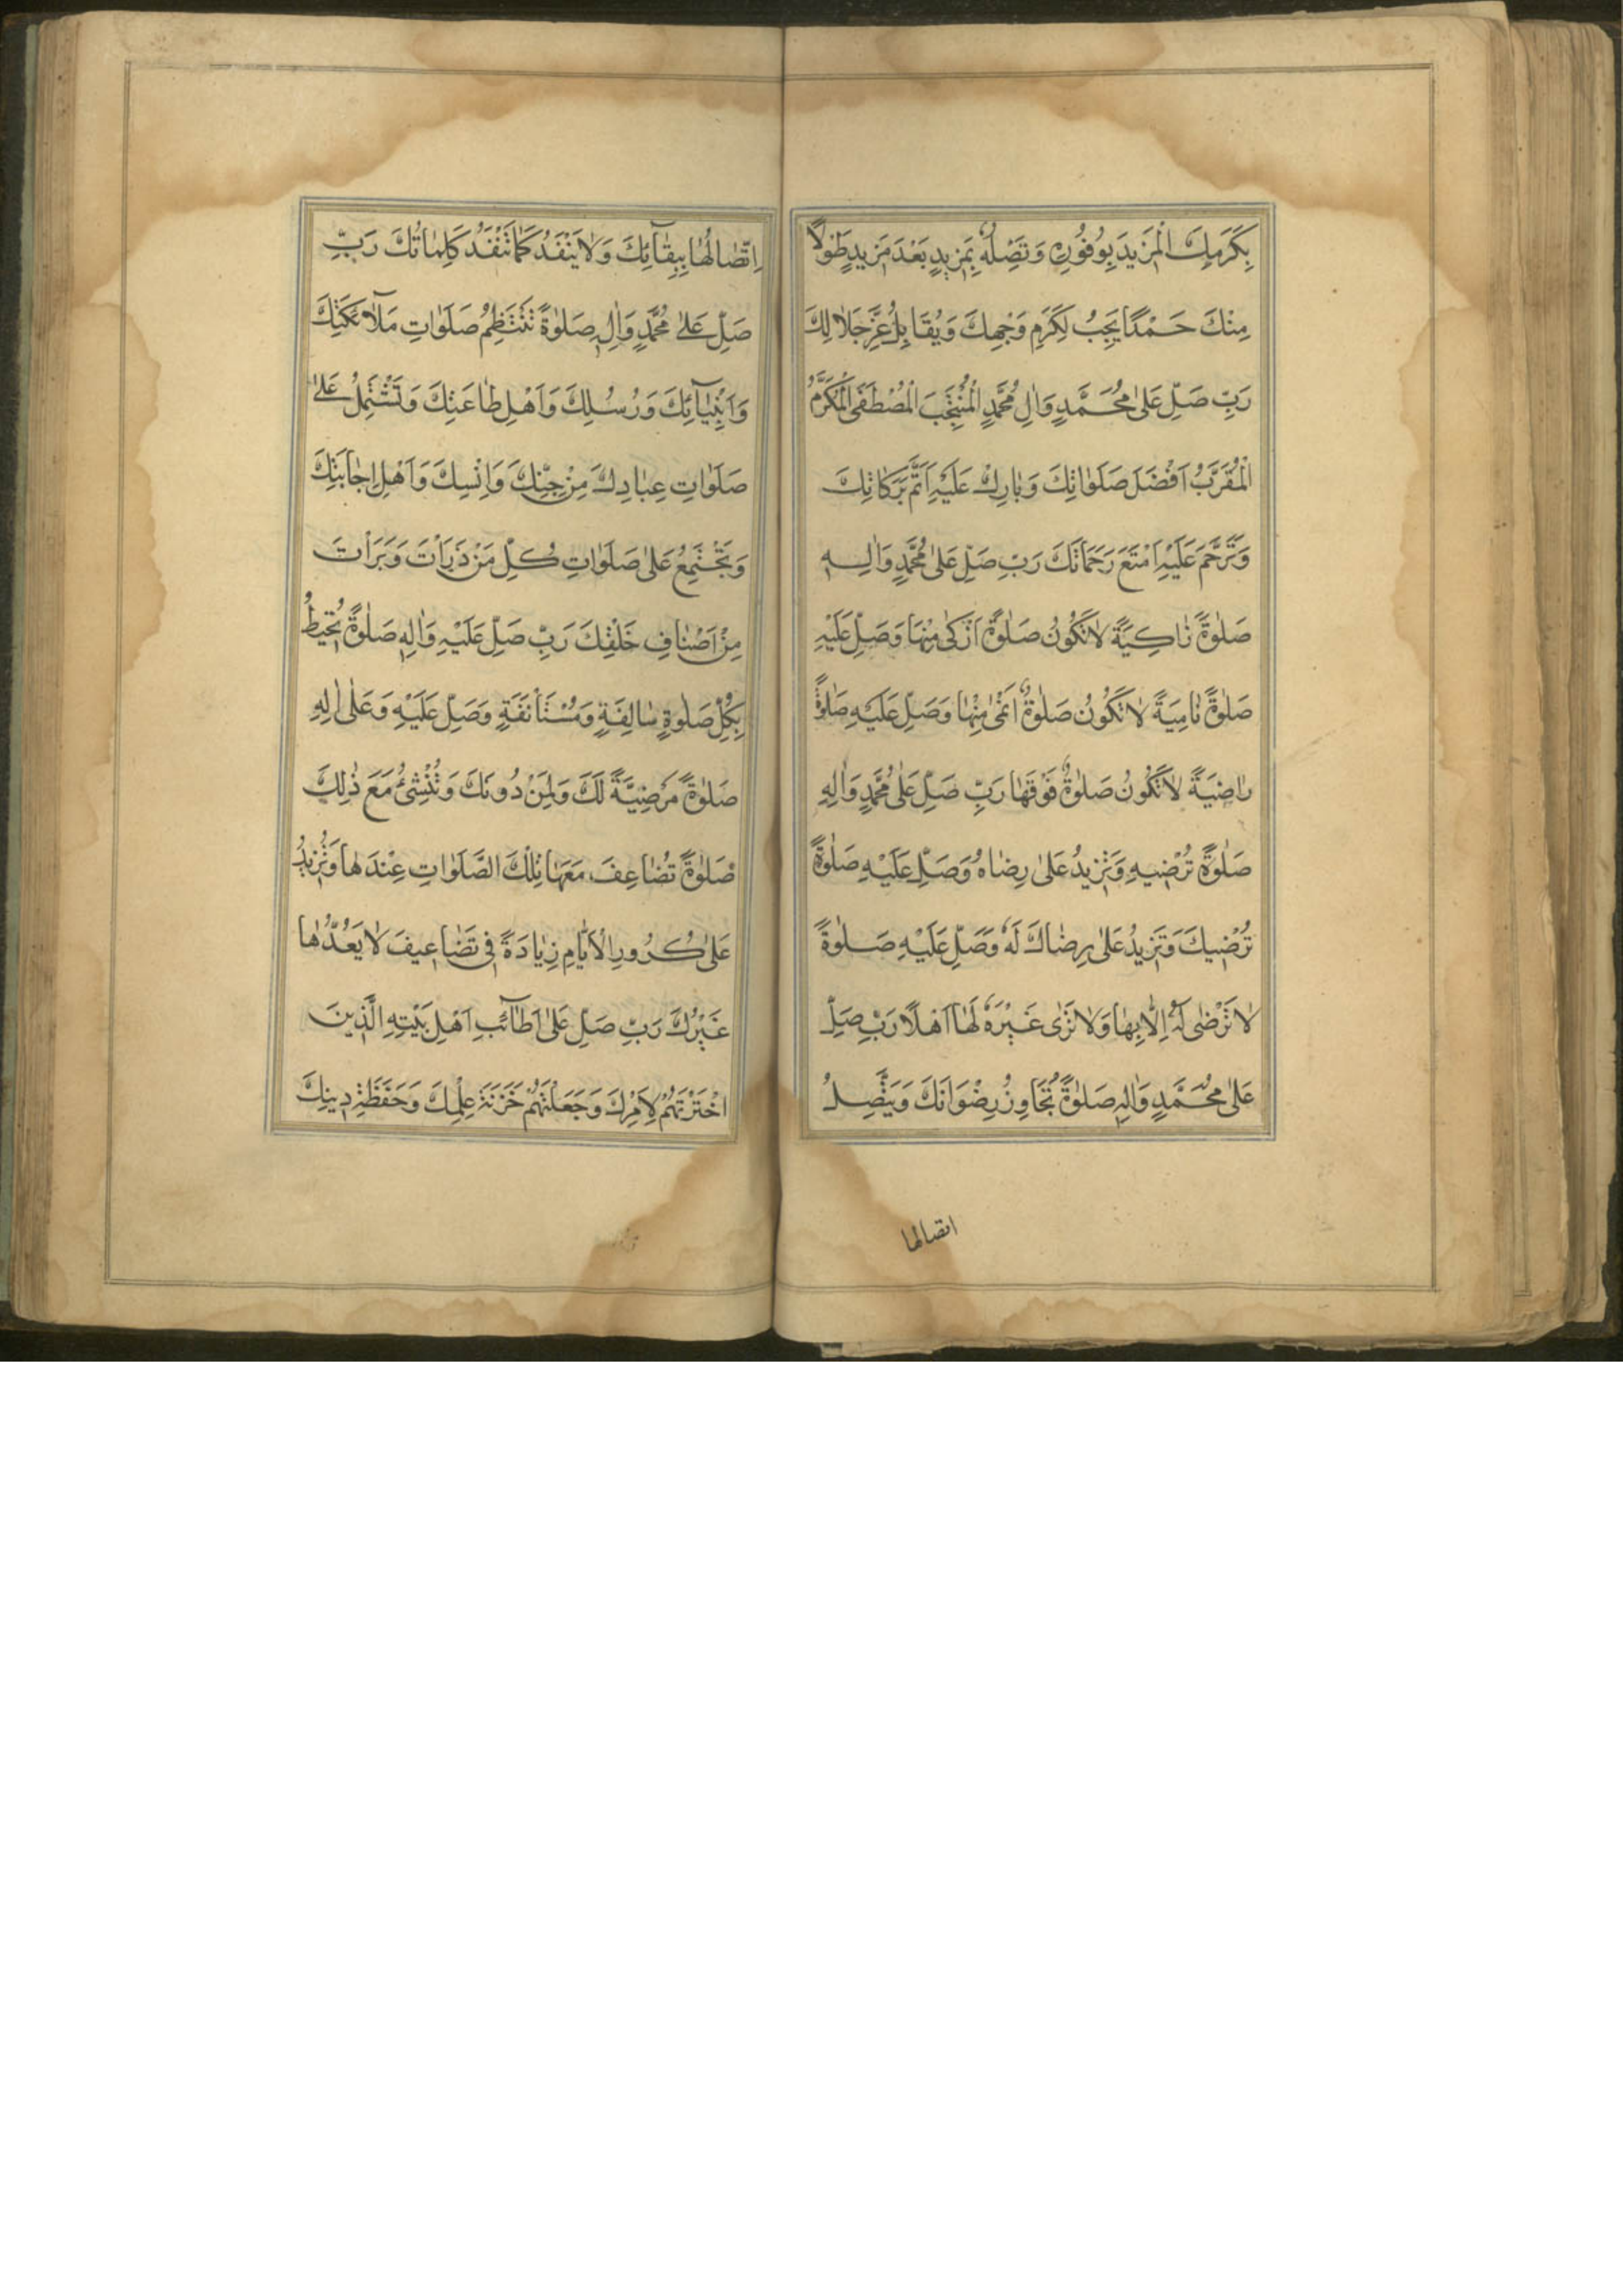 بِكَرَمِكَ الْمَزيدَ بِوُفُورِهِ وَتَصِلُهُ بِمَزيدٍ بَعْدَ مَزيدٍ طَوْلًا
مِنْكَ حَمْدًا يَجِبُ لِكَرَمِ وَجْهِكَ وَيُقَابِلُ عِزَّ جَلَالِكَ
رَبِّ صَلِّ عَلىٰ مُحَمَّدٍ وَاٰلِ مُحَمَّدٍ الْمُنْتَجَبِ الْمُصْطَفَى الْمُكَرَّمِ
الْمُقَرَّبِ اَفْضَلَ صَلَوٰاتِكَ وَبٰارِكْ عَلَيْهِ اَتَمَّ بَرَكٰاتِكَ
وَتَرَحَّمْ عَلَيْهِ اَمْتَعَ رَحَمَاتِكَ رَبِّ صَلِّ عَلىٰ مُحَمَّدٍ وَاٰلِهِ
صَلوٰةً زٰاكِيَةً لٰا تَكُونُ صَلوٰةٌ اَزْكىٰ مِنْهَا وَصَلِّ عَلَيْهِ
صَلوٰةً نٰامِيَةً لٰا تَكُونُ صَلوٰةٌ اَنْمىٰ مِنْهٰا وَصَلِّ عَلَيْهِ صَلوٰةً
رٰاضِيَةً لٰا تَكُونُ صَلوٰةٌ فَوْقَهٰا رَبِّ صَلِّ عَلىٰ مُحَمَّدٍ وَاٰلِهِ
صَلوٰةً تُرْضِيهِ وَتَزيدُ عَلىٰ رِضٰاهُ وَصَلِّ عَلَيْهِ صَلوٰةً
تُرْضِيكَ وَتَزيدُ عَلىٰ رِضٰاكَ لَهُ وَصَلِّ عَلَيْهِ صَلوٰةً
لٰا تَرْضىٰ لَهُ اِلّٰا بِهٰا وَلٰا تَرىٰ غَيْرَهُ لَهٰا اَهْلًا رَبِّ صَلِّ
عَلىٰ مُحَمَّدٍ وَاٰلِهِ صَلوٰةً تُجَاوِزُ رِضْوَانَكَ وَيَتَّصِلُ
اتصالها
اِتِّصٰالُهٰا بِبِقٰآئِكَ وَلٰا يَنْفَدُ كَمٰا تَنْفَدُ كَلِمٰاتُكَ رَبِّ
صَلِّ عَلىٰ مُحَمَّدٍ وَاٰلِهِ صَلوٰةً تَنْتَظِمُ صَلَوٰاتِ مَلٰآئِكَتِكَ
وَاَنْبِيٰآئِكَ وَرُسُلِكَ وَاَهْلِ طٰاعَتِكَ وَتَشْتَمِلُ عَلىٰ
صَلَوٰاتِ عِبٰادِكَ مِنْ جِنِّكَ وَاِنْسِكَ وَاَهْلِ اِجٰابَتِكَ
وَتَجْتَمِعُ عَلىٰ صَلَوٰاتِ كُلِّ مَنْ ذَرَاْتَ وَبَرَاْتَ
مِنْ اَصْنٰافِ خَلْقِكَ رَبِّ صَلِّ عَلَيْهِ وَاٰلِهِ صَلوٰةً تُحيطُ
بِكُلِّ صَلوٰةٍ سٰالِفَةٍ وَمُسْتَاْنَفَةٍ وَصَلِّ عَلَيْهِ وَعَلىٰ اٰلِهِ
صَلوٰةً مَرْضِيَّةً لَكَ وَلِمَنْ دُونَكَ وَتُنْشِئُ مَعَ ذٰلِكَ
صَلوٰةً تُضٰاعِفُ مَعَهٰا تِلْكَ الصَّلَوٰاتِ عِنْدَهٰا وَتُزيدُ
عَلىٰ كُرُورِ الْاَيّٰامِ زِيٰادَةً فى تَضٰاعِيفَ لٰا يَعُدُّهٰا
غَيْرُكَ رَبِّ صَلِّ عَلىٰ اَطٰآئِبِ اَهْلِ بَيْتِهِ الَّذينَ
اخْتَرْتَهُمْ لِاَمْرِكَ وَجَعَلْتَهُمْ خَزَنَةَ عِلْمِكَ وَحَفَظَةَ دينِكَ